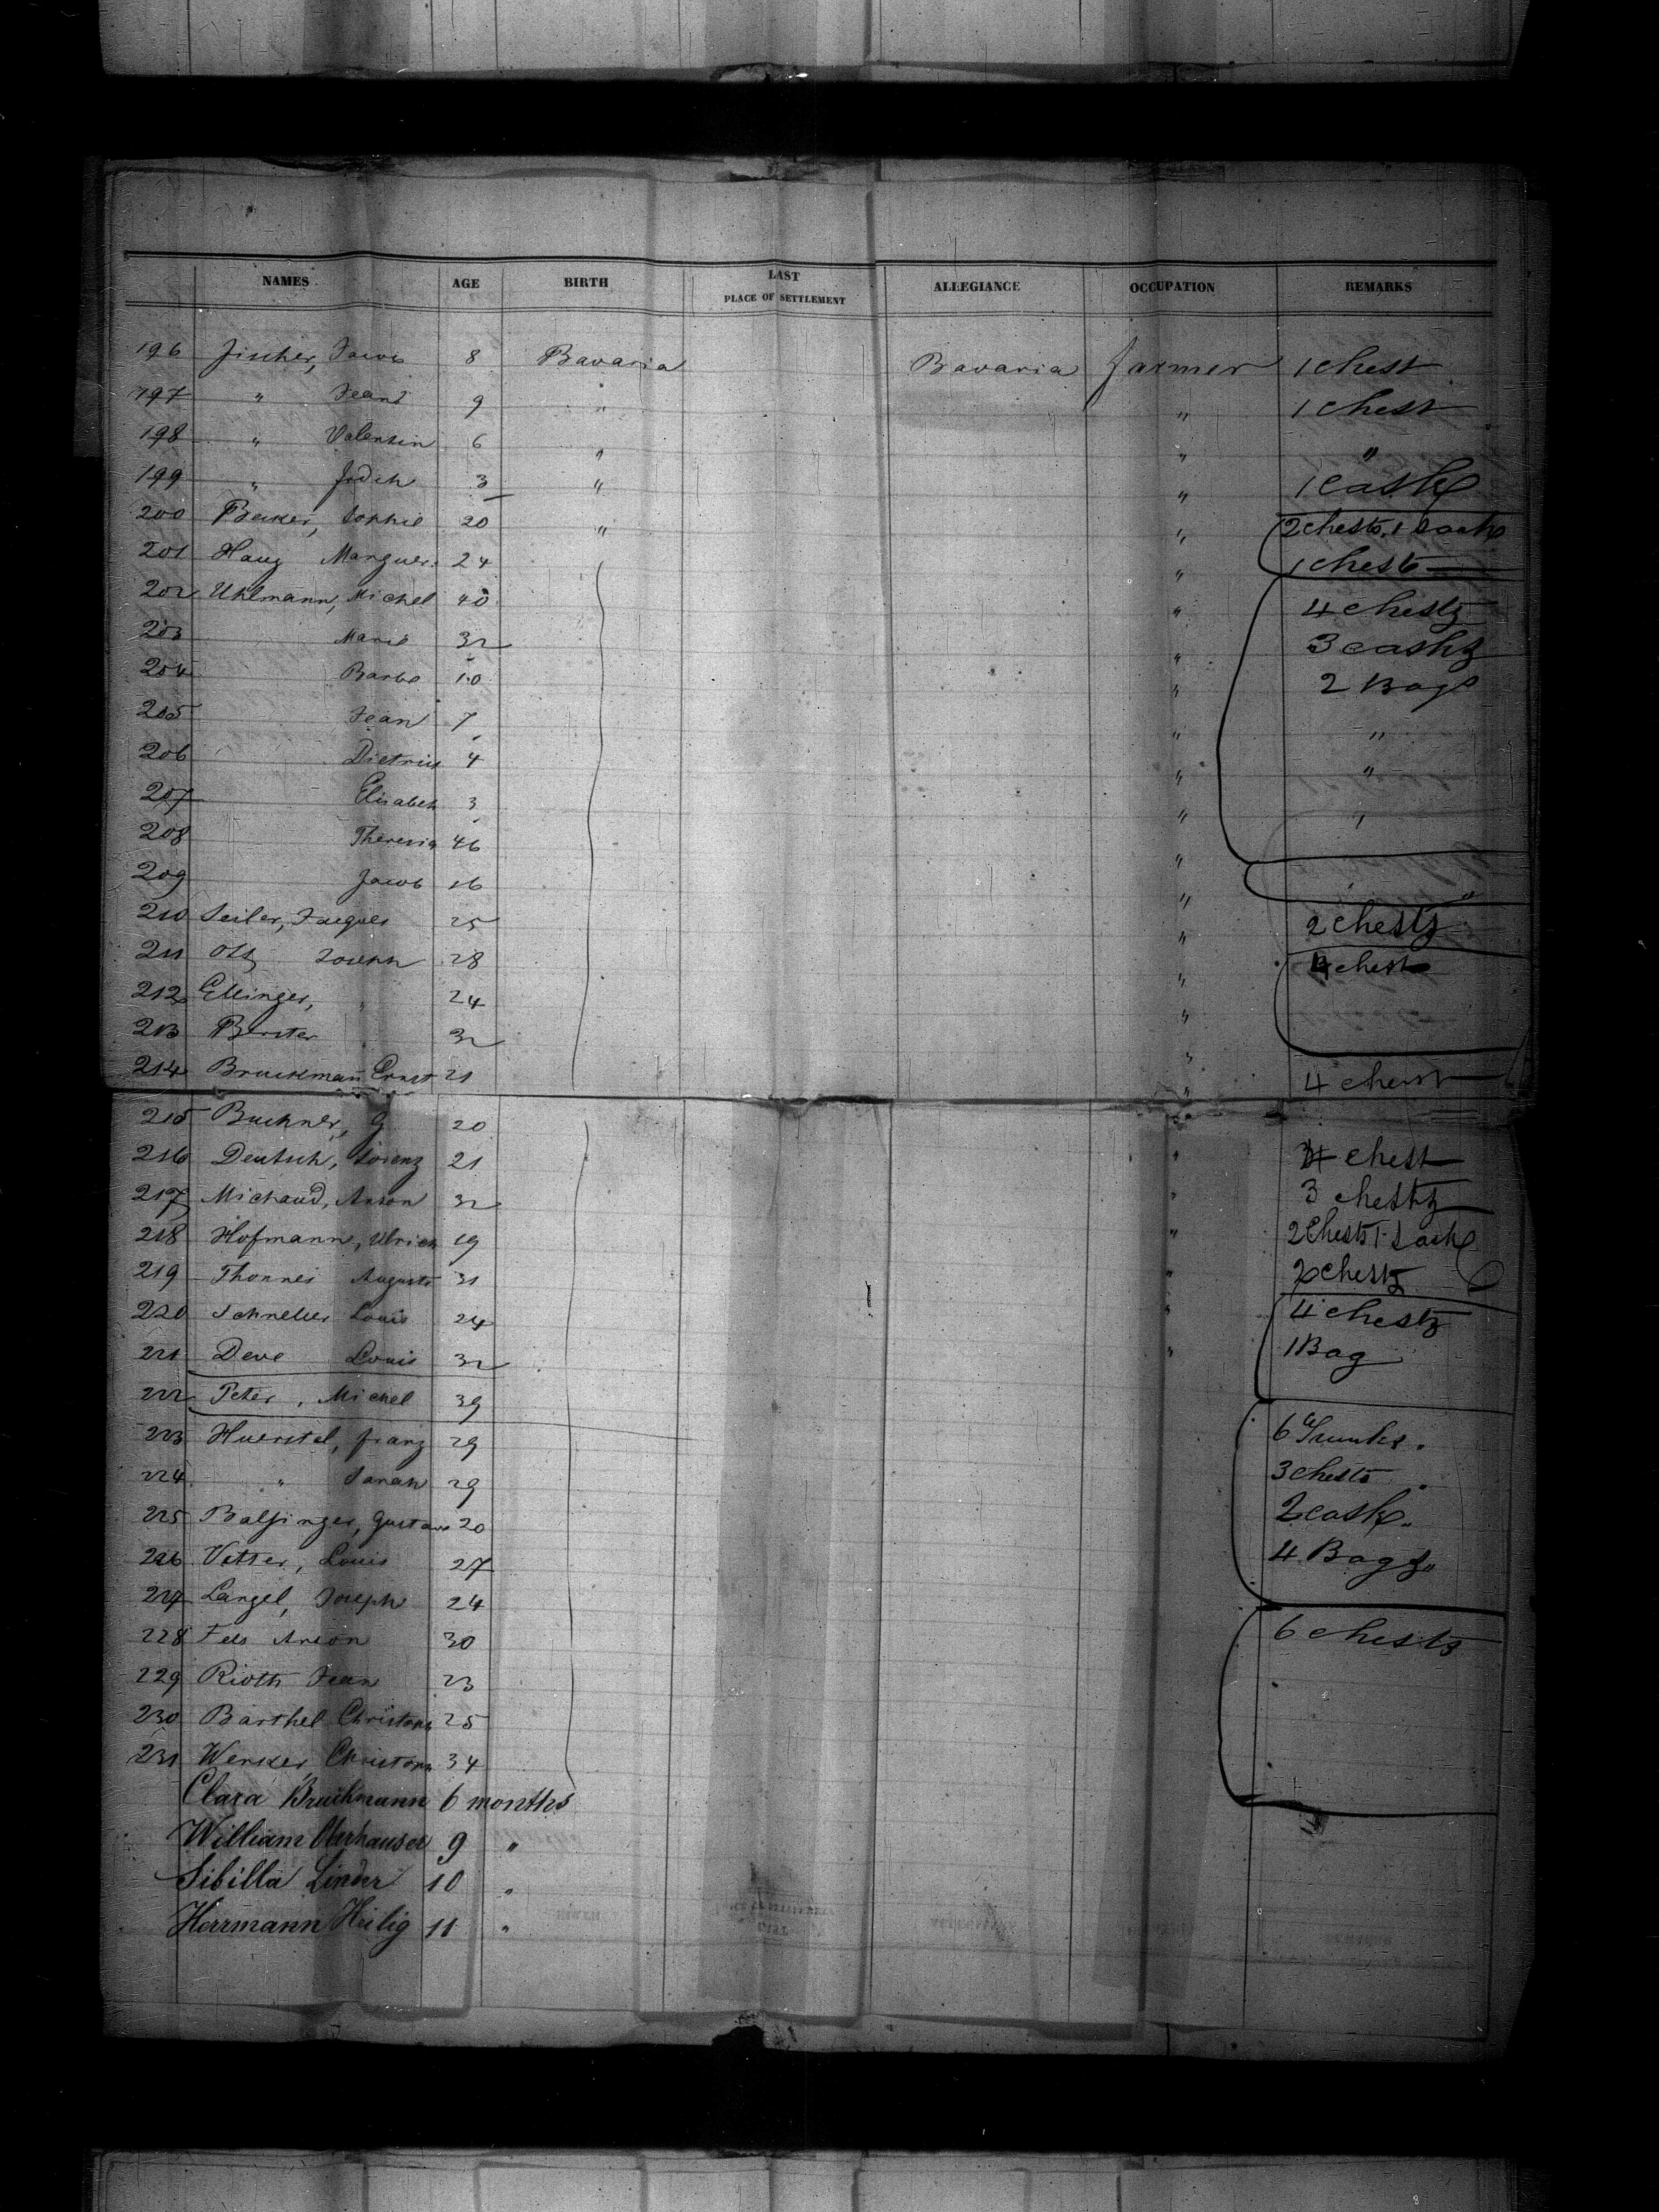 NAMES AGE BIRTH LAST PLACE OF SETTLEMENT ALLEGIANCE OCCUPATION REMARKS
196 Fischer, Jacob 8 Bavaria Bavaria farmer 1 chest
197 " Jean 9 " " 1 chest
198 " Valentin 6 " " "
199 " 3 " " 1 cask
200 Becker, Sophie 20 " " 2 chests, 1 sack
201 Haug Marguer. 24 " 1 chest
202 Uhlmann, Michel 40 " 4 chests
203 Marie 32 " 3 casks
204 Barbe 10 " 2 Bags
205 Jean 7 " "
206 4 " "
207 Elisabeth 3 " "
208 Theresia 46 "
209 Jacob 16 " "
210 Seiler, Jacques 25 " 2 chests
211 Ott Joseph 28 " chest
212 Ellinger, " 24 "
213 Berster " 32 "
214 Bruckmann Ernst 21 " 4 chest
215 Buchner, G 20
216 Deutsch, Lorenz 21 " chest
217 Michaud, Anton 32 " 3 chests
218 Hofmann, Ulrich 19 " 2 chests 1 Sack
219 Auguste 31 " 2 chests
220 Louis 24 " 4 chests
221 Deve Louis 32 " 1 Bag
222 Peter, Michel 39
223 Huerstel, Franz 29 6 Trunks.
224 " Sarah 29 3 chests
225 Balfinger, Gustave 20 2 cask.
226 Vetter, Louis 27 4 Bags
227 Langel, Joseph 24
228 Fels Anton 30 6 chests
229 Rioth Jean 23
230 Barthel Christoph 25
231 Werker, Christoph 34
Clara Bruckmann 6 months
William Oberhauser 9 "
Sibilla Linder 10 "
Herrmann Heilig 11 "